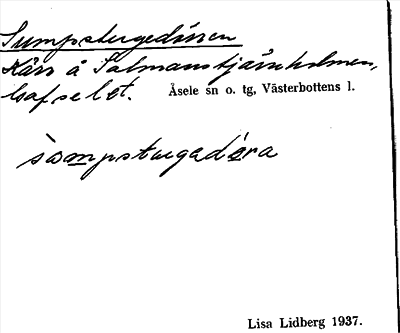 Sumpstugedören
Kärr å Salmanstjärnholmen,
Gafselet. Åsele sn o. tg, Västerbottens l.
sòmpstugadéra
Lisa Lidberg 1937.